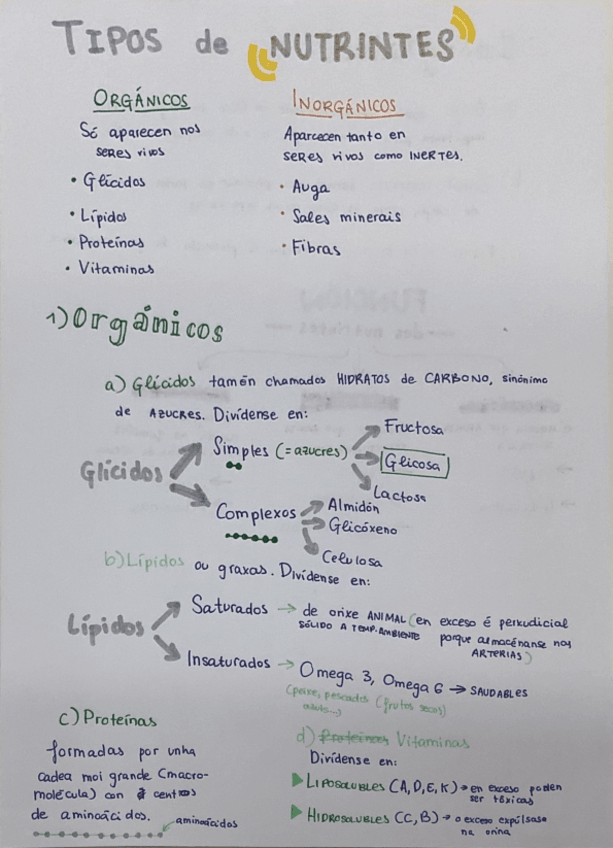 TIPOS de NUTRINTES
ORGÁNICOS
Só aparecen nos
seres vivos
• Glícidos
• Lípidos
• Proteínas
• Vitaminas
INORGÁNICOS
Aparecen tanto en
seres vivos como INERTES.
• Auga
• Sales minerais
• Fibras
1) Orgánicos
a) Glícidos tamén chamados HIDRATOS de CARBONO, sinónimo
de AZUCRES. Divídense en:
Glícidos
Simples (=azucres)
Fructosa
Glicosa
Lactosa
Complexos
Almidón
Glicóxeno
Celulosa
b) Lípidos ou graxas. Divídense en:
Lípidos
Saturados → de orixe ANIMAL (en exceso é perxudicial
SÓLIDO A TEMP. AMBIENTE porque almacénanse nas
ARTERIAS)
Insaturados → Omega 3, Omega 6 → SAUDABLES
(peixe, pescados (frutos secos)
c) Proteínas
formadas por unha
cadea moi grande (macro-
molécula) con centos
de aminoácidos.
aminoácidos
d) Proteínas Vitaminas
Divídense en:
▶ LIPOSOLUBLES (A, D, E, K) → en exceso poden
ser tóxicas
▶ HIDROSOLUBLES (C, B) → o exceso expúlsase
na orina